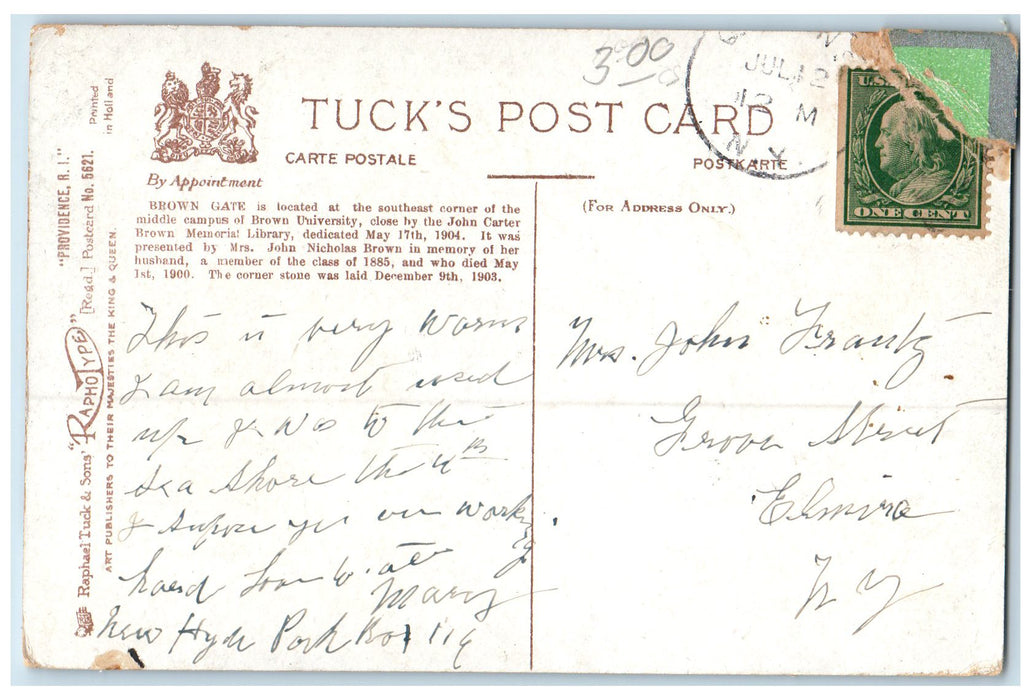 3 00
TUCK'S POST CARD
CARTE POSTALE
POSTKARTE
By Appointment
(FOR ADDRESS ONLY.)
BROWN GATE is located at the southeast corner of the
middle campus of Brown University, close by the John Carter
Brown Memorial Library, dedicated May 17th, 1904. It was
presented by Mrs. John Nicholas Brown in memory of her
husband, a member of the class of 1885, and who died May
1st, 1900. The corner stone was laid December 9th, 1903.
"PROVIDENCE, R. I."
Printed
in Holland
Raphael Tuck & Sons' "RAPHOTYPE" [Regd.] Postcard No. 5621.
ART PUBLISHERS TO THEIR MAJESTIES THE KING & QUEEN.
JUL 12
12 M
N.Y.
U.S.
ONE CENT
This is very warm
I am almost used
up I was to the
Sea Shore the 4th
I supose you are working
hard love to all
Mary
New Hyde Park Box 119
Mrs. John Frantz
Grove Street
Elmira
N Y